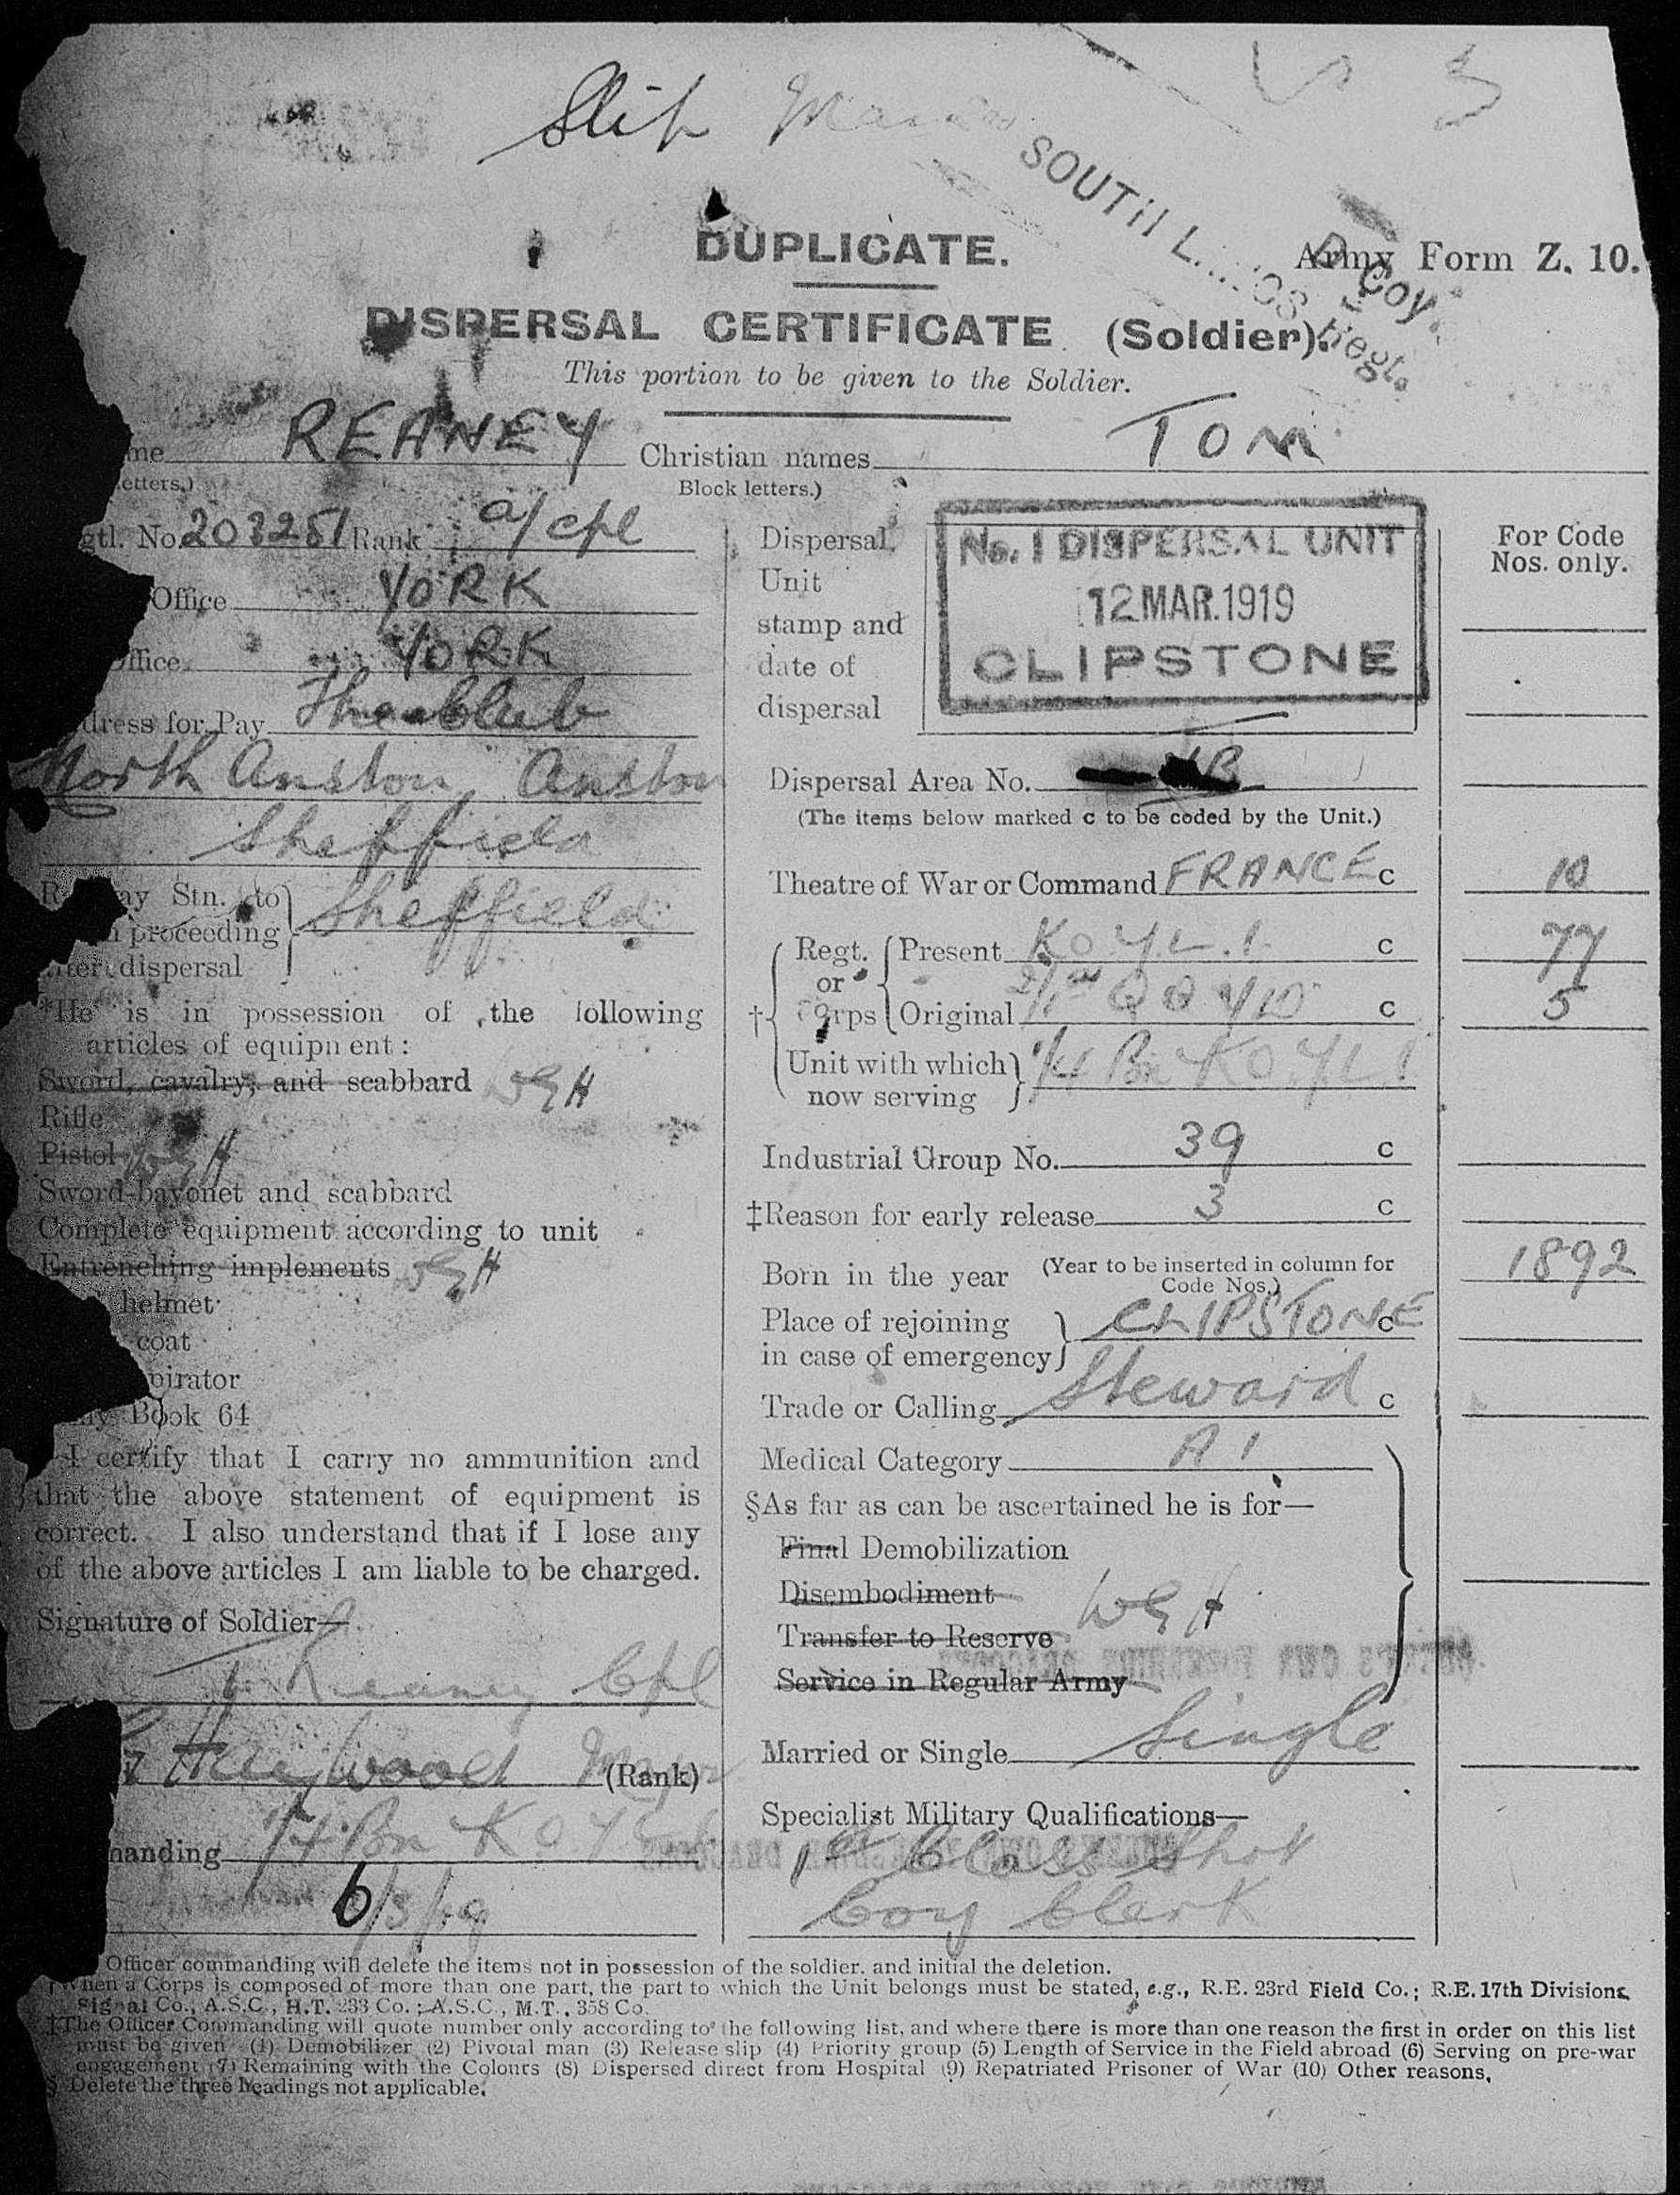 Slip Man
SOUTH L...CS Regt.
D Coy.
DUPLICATE.
Army Form Z. 10.
DISPERSAL CERTIFICATE (Soldier).
This portion to be given to the Soldier.
me REANEY Christian names TOM
etters.) Block letters.)
gtl. No. 203251 Rank a/cpl
Office YORK
ffice YORK
dress for Pay The Club
North Anston, Anston
Sheffield
R ay Stn. to
n proceeding Sheffield
fter dispersal
*He is in possession of the following
articles of equipment:
Sword, cavalry, and scabbard WGH
Rifle
Pistol WGH
Sword-bayonet and scabbard
Complete equipment according to unit
Entrenching implements WGH
helmet
coat
pirator
my Book 64
I certify that I carry no ammunition and
that the above statement of equipment is
correct. I also understand that if I lose any
of the above articles I am liable to be charged.
Signature of Soldier—
T. Reaney Cpl
Heywood Major (Rank)
manding 1/4 Bn K O Y L I
6/3/19
Dispersal
Unit
stamp and
date of
dispersal
No. 1 DISPERSAL UNIT
12 MAR. 1919
CLIPSTONE
For Code
Nos. only.
Dispersal Area No.
(The items below marked c to be coded by the Unit.)
Theatre of War or Command FRANCE c 10
† Regt. or Corps
Present K.O.Y.L.I. c 77
Original 2/1st Q O Y D c 5
Unit with which
now serving 1/4 Bn K O Y L I
Industrial Group No. 39 c
‡Reason for early release 3 c
Born in the year (Year to be inserted in column for
Code Nos.) 1892
Place of rejoining
in case of emergency CLIPSTONE c
Trade or Calling Steward c
Medical Category A 1
§As far as can be ascertained he is for—
Final Demobilization
Disembodiment
WGH
Transfer to Reserve
Service in Regular Army
Married or Single Single
Specialist Military Qualifications—
1st Class Shot
Coy Clerk
Officer commanding will delete the items not in possession of the soldier, and initial the deletion.
†When a Corps is composed of more than one part, the part to which the Unit belongs must be stated, e.g., R.E. 23rd Field Co.; R.E. 17th Divisional
Signal Co., A.S.C., H.T. 233 Co.; A.S.C., M.T., 358 Co.
‡The Officer Commanding will quote number only according to the following list, and where there is more than one reason the first in order on this list
must be given (1) Demobilizer (2) Pivotal man (3) Release slip (4) Priority group (5) Length of Service in the Field abroad (6) Serving on pre-war
engagement (7) Remaining with the Colours (8) Dispersed direct from Hospital (9) Repatriated Prisoner of War (10) Other reasons.
§ Delete the three headings not applicable.